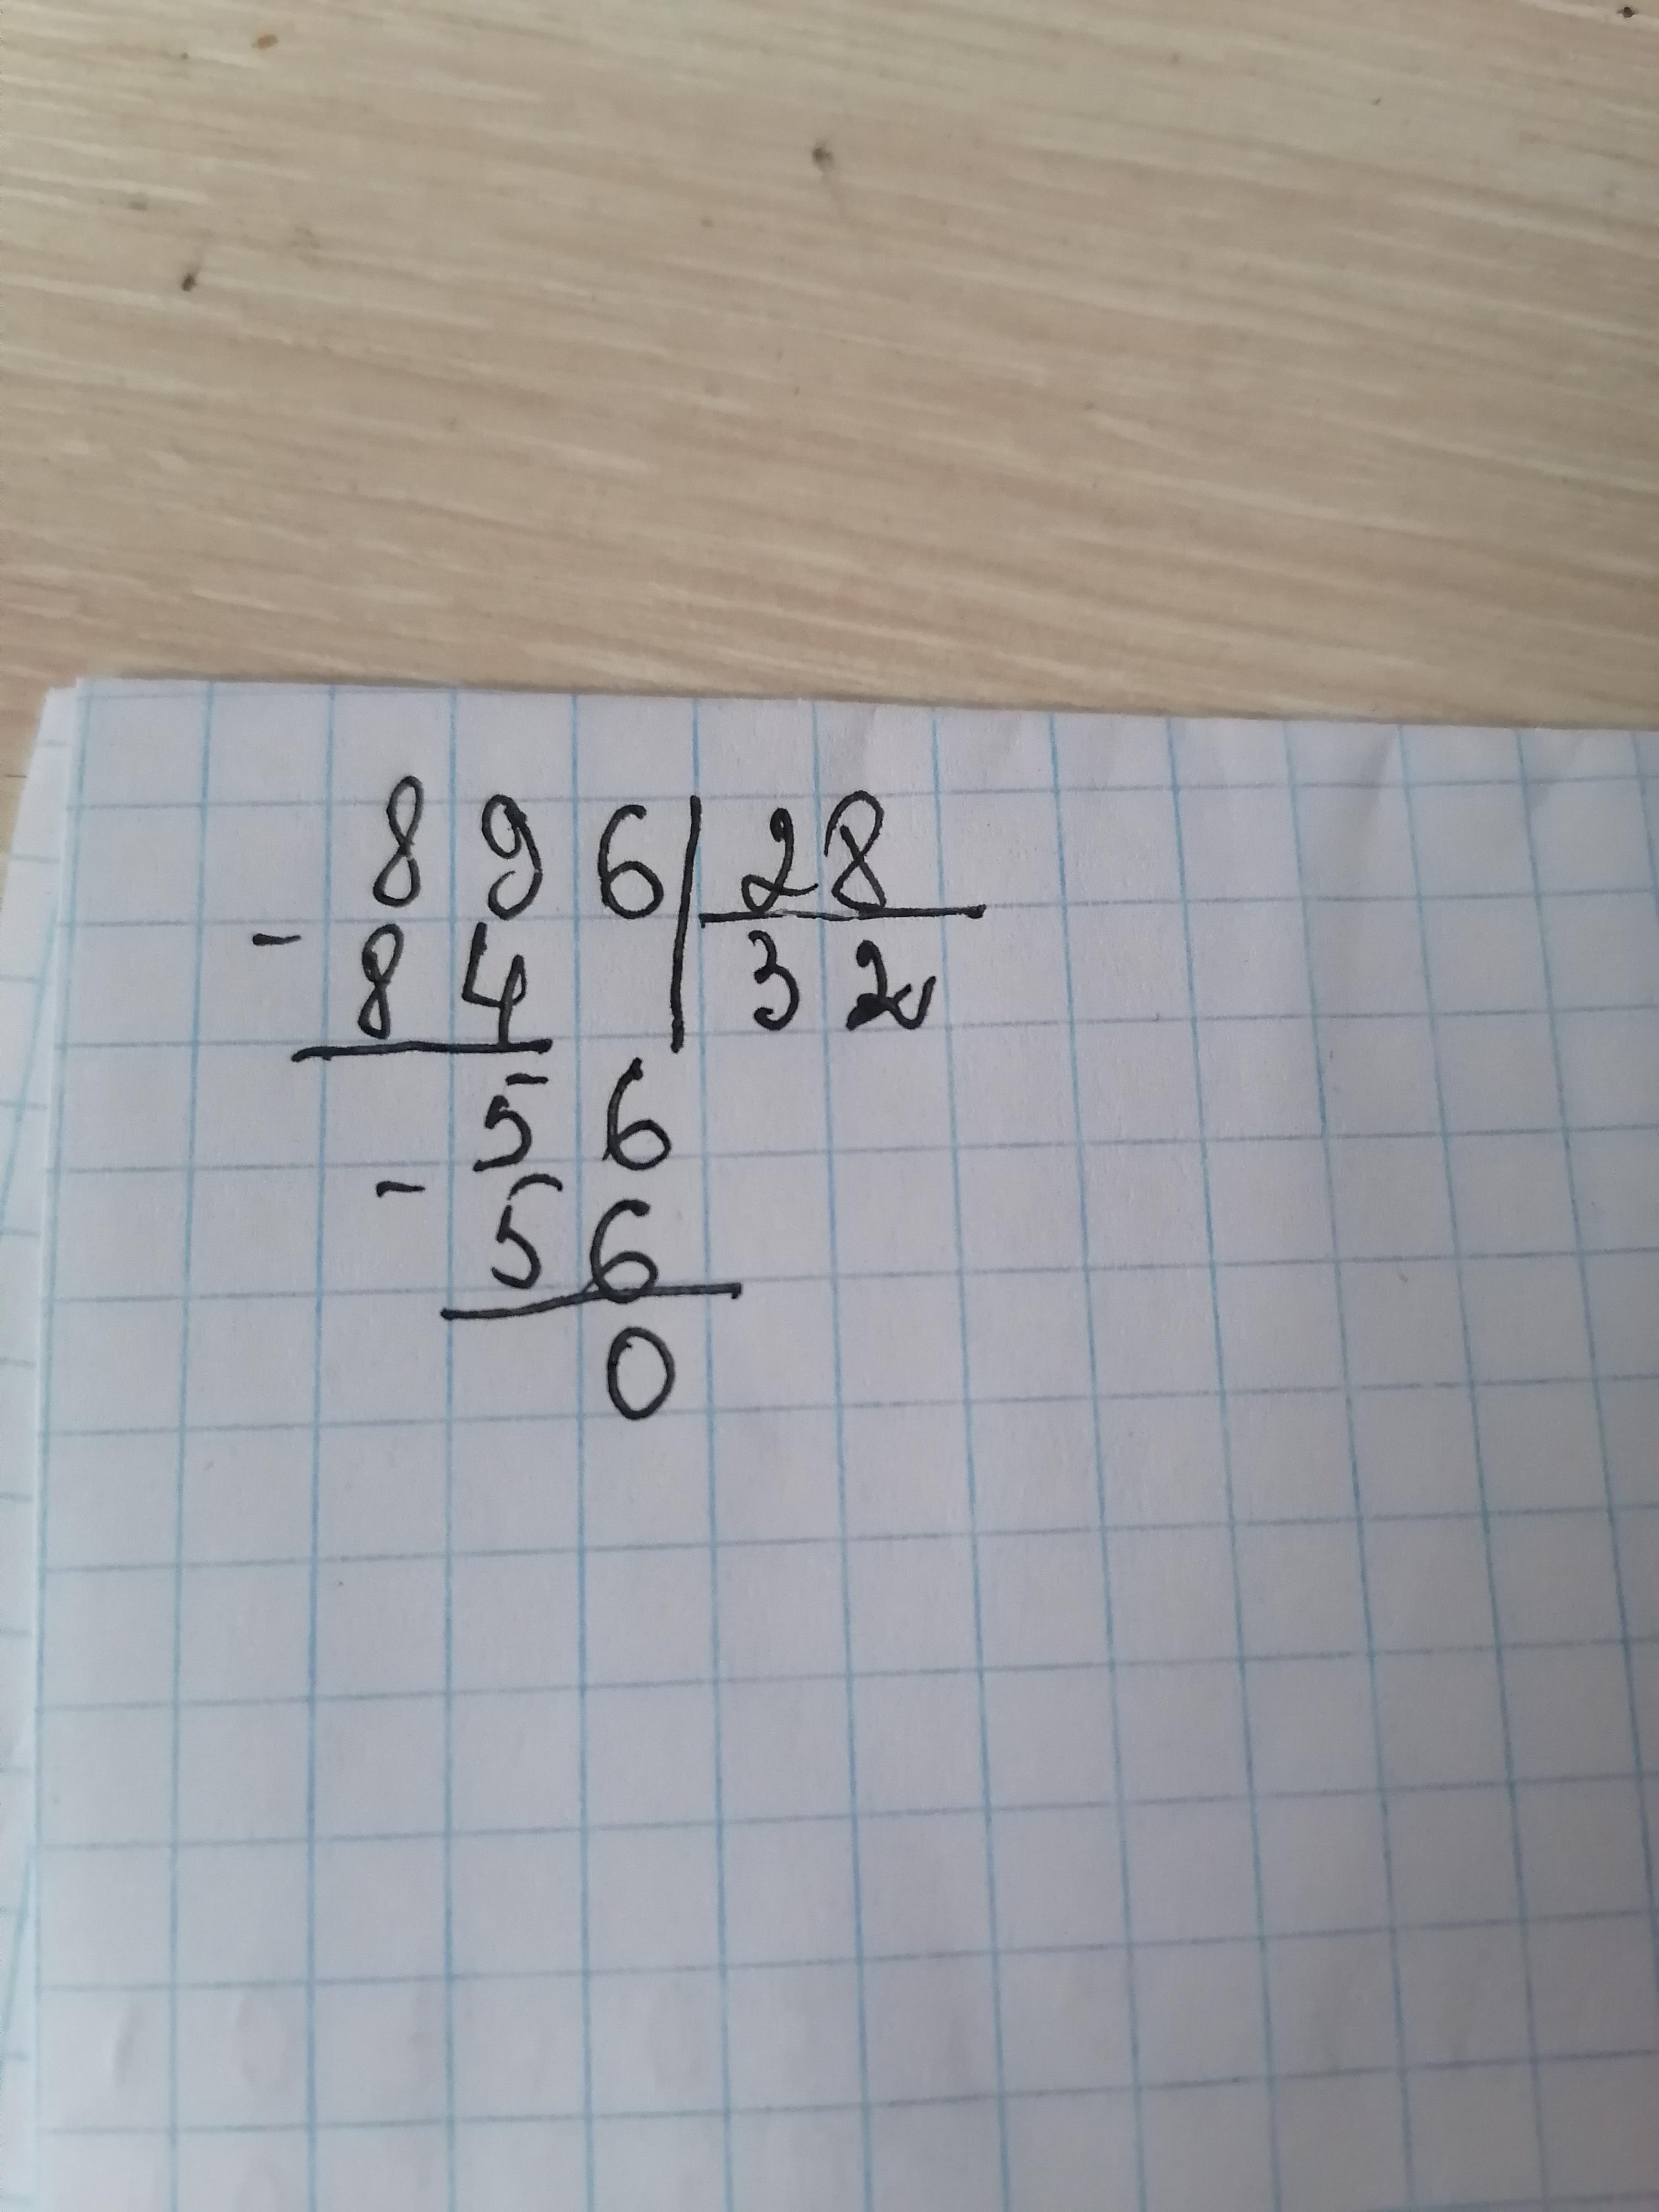 896 28
- 84 32
56
- 56
0